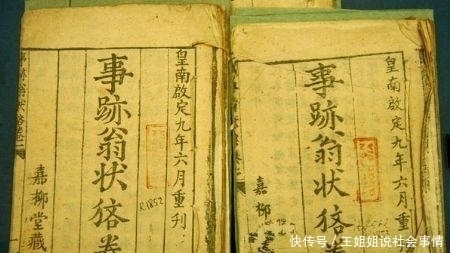 皇南啟定九年六月重刊
事跡翁狀𤞼卷
R.1852
嘉柳堂藏
皇南啟定九年六月重
事跡翁狀𤞼
嘉柳
快传号 / 王姐姐说社会事情